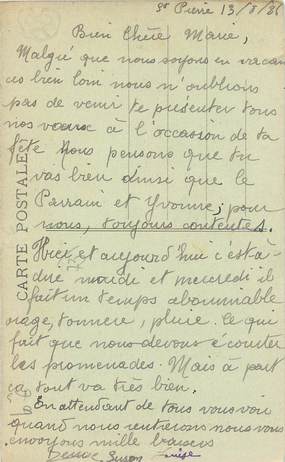 St Pierre 13/8/
Bien Chère Marie,
Malgré que nous soyons en vacan
ces bien loin nous n'oublions
pas de venir te présenter tous
nos vœux à l'occasion de ta
fête Nous pensons que tu
vas bien ainsi que le
Parrain et Yvonne; pour
nous, toujours contentes.
Hier et aujourd'hui c'est-à-
dire mardi et mercredi il
fait un temps abominable
orage, tonnerre, pluie. Ce qui
fait que nous devons écourter
les promenades. Mais à part
ça tout va très bien.
En attendant de tous vous voir
quand nous rentrerons nous vous
envoyons mille baisers
Suzon
CARTE POSTALE